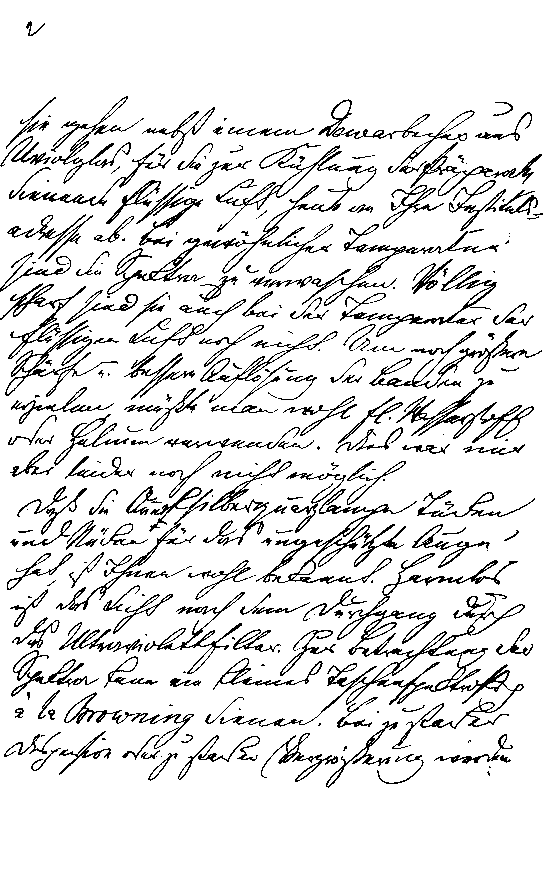 2
sie gehen nebst einem Dewarbecher aus
Uviolglas, für die zur Kühlung der Präparate
dienende flüssige Luft, heute an Ihre Instituts-
adresse ab. Bei gewöhnlicher Temperatur
sind die Spektra zu verwaschen. Völlig
scharf sind sie auch bei der Temperatur der
flüssigen Luft noch nicht. Um noch größere
Schärfe u. bessere Auflösung der Banden zu
erzielen, müßte man wohl fl. Wasserstoff
oder Helium verwenden. Dies war mir
aber leider noch nicht möglich.
Daß die Quecksilberquarzlampe Tücken
und Nücken für das ungeschützte Auge
hat, ist Ihnen wohl bekannt. Harmlos
ist das Licht nach dem Durchgang durch
das Ultraviolettfilter. Zur Betrachtung der
Spektra kann ein kleines Taschenspektroskop
à la Browning dienen. Bei zu starker
Dispersion oder zu starker Vergrößerung werden